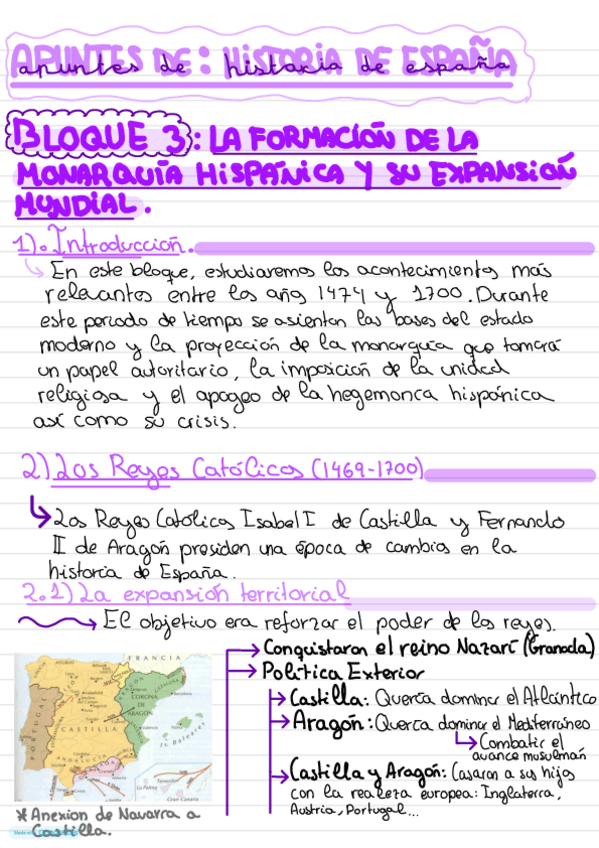 APUNTES DE: HISTORIA DE ESPAÑA
apuntes de: historia de españa
BLOQUE 3: LA FORMACIÓN DE LA
MONARQUÍA HISPÁNICA Y SU EXPANSIÓN
MUNDIAL.
1). Introducción.
En este bloque, estudiaremos los acontecimientos más
relevantes entre los años 1474 y 1700. Durante
este periodo de tiempo se asientan las bases del estado
moderno y la proyección de la monarquía que tomará
un papel autoritario, la imposición de la unidad
religiosa y el apogeo de la hegemonía hispánica
así como su crisis.
2) Los Reyes Católicos (1469-1700)
Los Reyes Católicos Isabel I de Castilla y Fernando
II de Aragón presiden una época de cambios en la
historia de España.
2.1) La expansión territorial
El objetivo era reforzar el poder de los reyes.
Conquistaron el reino Nazarí (Granada)
Política Exterior
Castilla: Quería dominar el Atlántico
Aragón: Quería dominar el Mediterráneo
Combatir el
avance musulmán
Castilla y Aragón: Casaron a sus hijos
con la realeza europea: Inglaterra,
Austria, Portugal...
FRANCIA
PORTUGAL
CASTILLA
CORONA
DE
ARAGÓN
Is. Baleares
La Palma
Tenerife
Gran Canaria
* Anexion de Navarra a
Castilla.